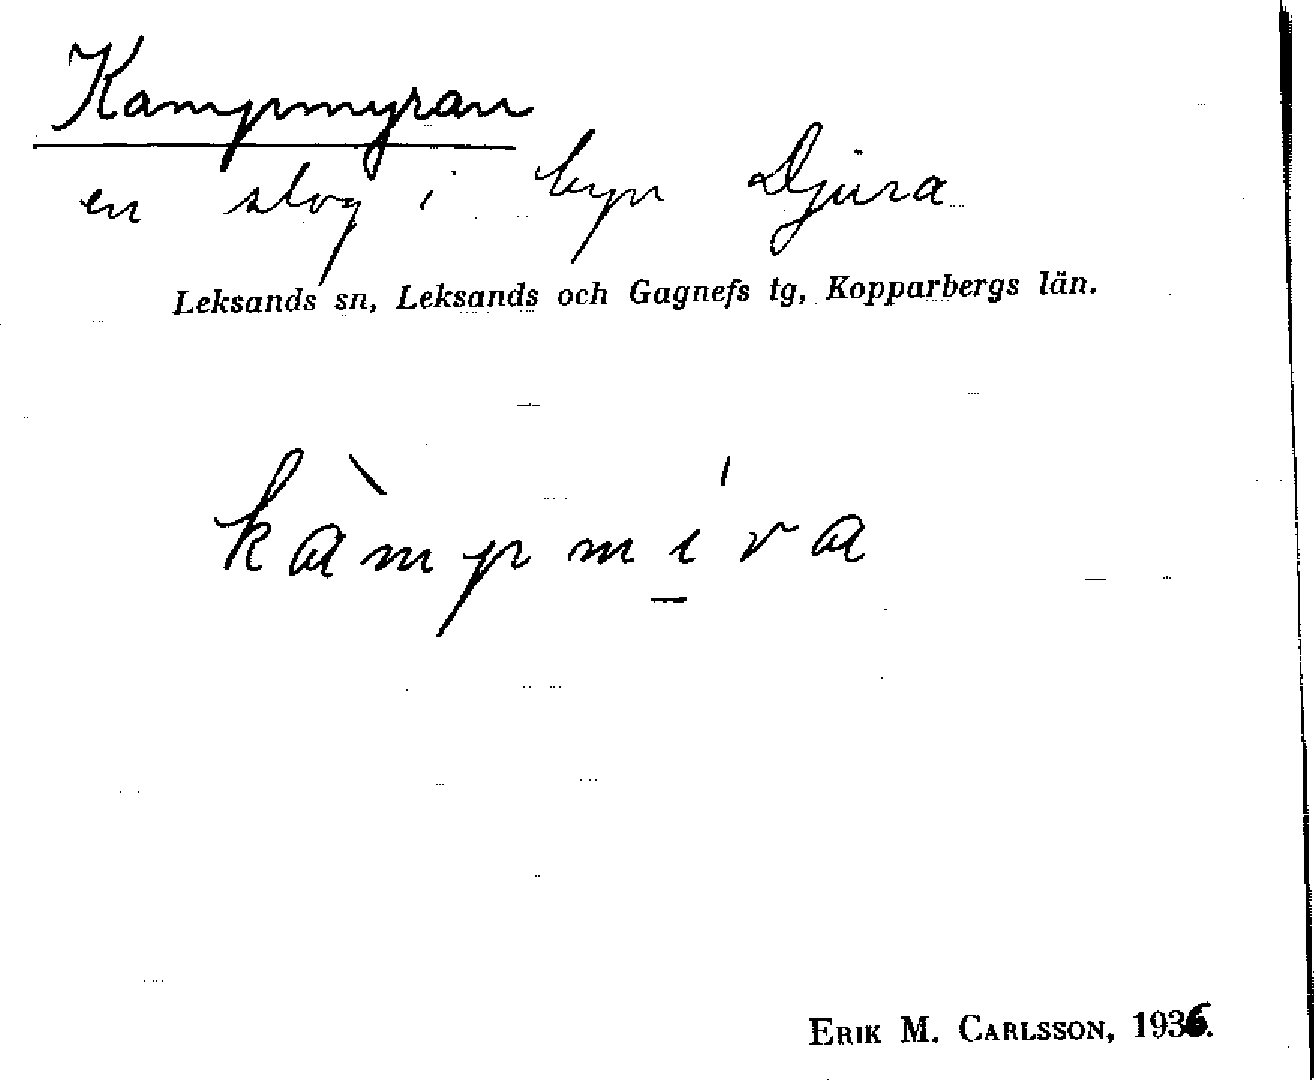 Kampmyran
en slog i byn Djura
Leksands sn, Leksands och Gagnefs tg, Kopparbergs län.
kàmpmí̱ra
ERIK M. CARLSSON, 1936.